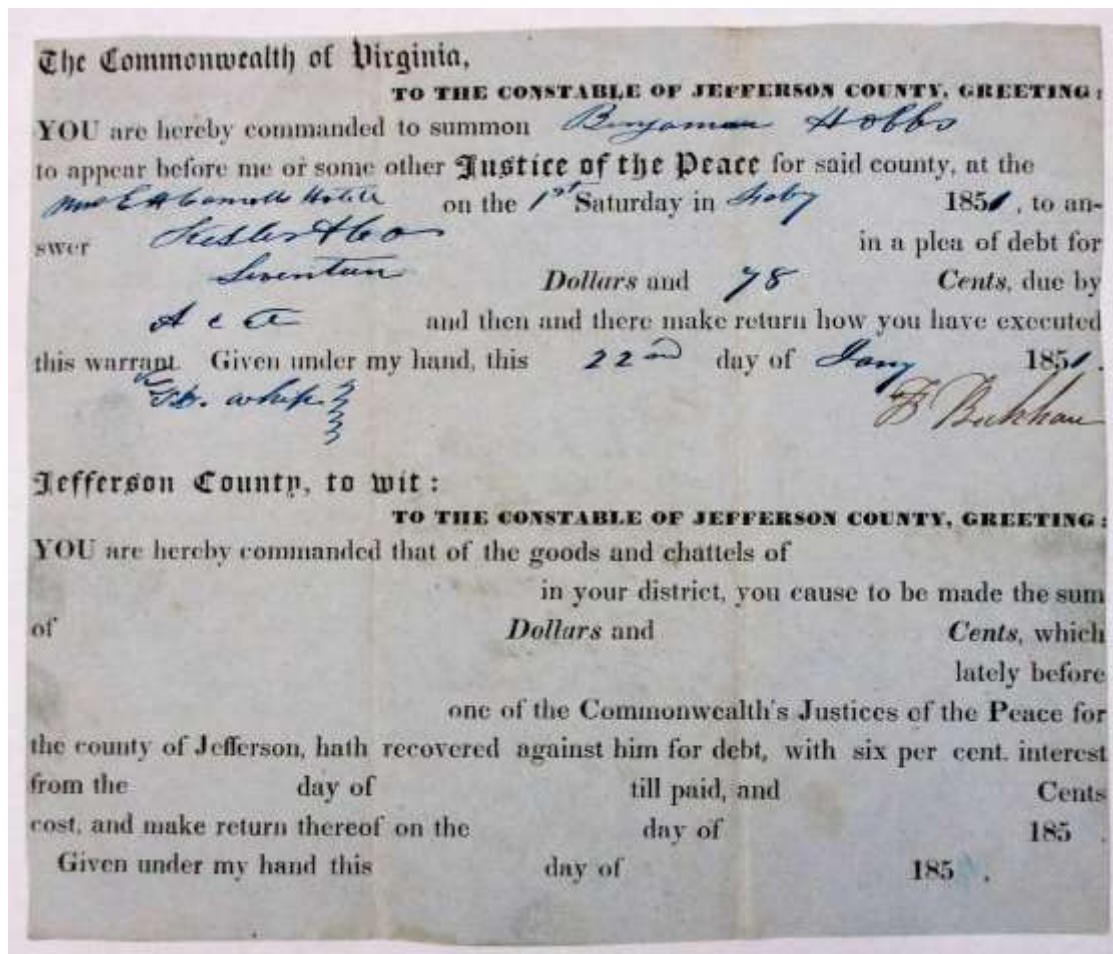 The Commonwealth of Virginia,
TO THE CONSTABLE OF JEFFERSON COUNTY, GREETING:
YOU are hereby commanded to summon Benjaman Hobbs
to appear before me or some other Justice of the Peace for said county, at the
Hotell on the 1st Saturday in Feby 1851, to an-
swer & Co in a plea of debt for
Seventeen Dollars and 78 Cents, due by
and then and there make return how you have executed
this warrant. Given under my hand, this 22nd day of Jany 1851.
F Beckham
Jefferson County, to wit:
TO THE CONSTABLE OF JEFFERSON COUNTY, GREETING:
YOU are hereby commanded that of the goods and chattels of
in your district, you cause to be made the sum
of Dollars and Cents, which
lately before
one of the Commonwealth's Justices of the Peace for
the county of Jefferson, hath recovered against him for debt, with six per cent. interest
from the day of till paid, and Cents
cost, and make return thereof on the day of 185 .
Given under my hand this day of 185 .